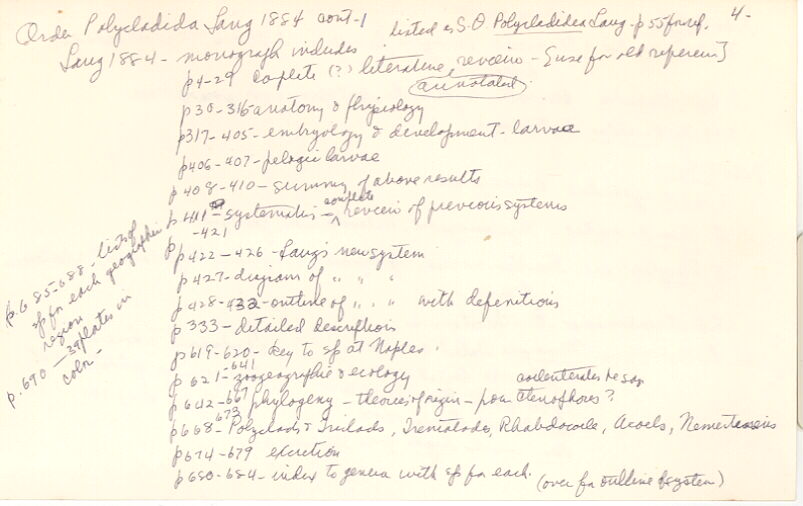 Order Polycladida Lang 1884 cont-1
listed as S.O Polycladidea Lang - p 55 for ref.
4-
Lang 1884 - monograph includes
p4-29 coplete (?) literature reveiw - [use for old references]
annotated
p30-316 anatomy & physiology
p317-405 - embryology & development - larvae
p406-407 - pelagic larvae
p408-410 - summary of above results
p411 - systematics - complete reveiw of previous systems
-421
p422-426 - Lang's new system
p427 - diagram of " " "
p428-432 - outline of " " " with defenitions
p333 - detailed descriptions
p619-620 - key to sp at Naples.
p621-641 zoogeographie & ecology
p642-667 phylogeny - theories of origin - from Ctenophores?
coelenterates he says
p668-673 Polyclads & Triclads, Trematodes, Rhabdocoele, Acoels, Nemerteans
p674-679 excretion
p680-684 - index to genera with sp for each.
(over for outline of system)
p.685-688 - lists of
sp for each geographic
region
p.690 - 39 plates in
color -